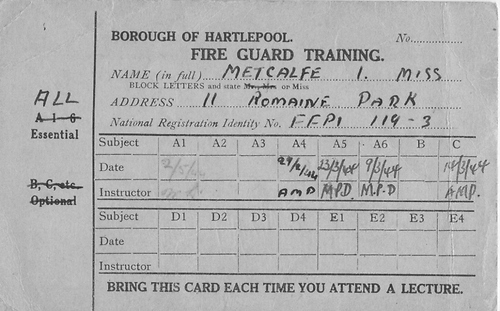 BOROUGH OF HARTLEPOOL. No.
FIRE GUARD TRAINING.
NAME (in full) METCALFE I. MISS
BLOCK LETTERS and state Mr., Mrs. or Miss
ADDRESS 11 ROMAINE PARK
National Registration Identity No. FFPI 119-3
ALL
A 1-6
Essential
B, C, etc.
Optional
Subject A1 A2 A3 A4 A5 A6 B C
Date 2/5/ 29/2/44 23/3/44 9/3/44 14/3/44
Instructor A.M.P. M.P.D. M.P.D A.M.P.
Subject D1 D2 D3 D4 E1 E2 E3 E4
Date
Instructor
BRING THIS CARD EACH TIME YOU ATTEND A LECTURE.